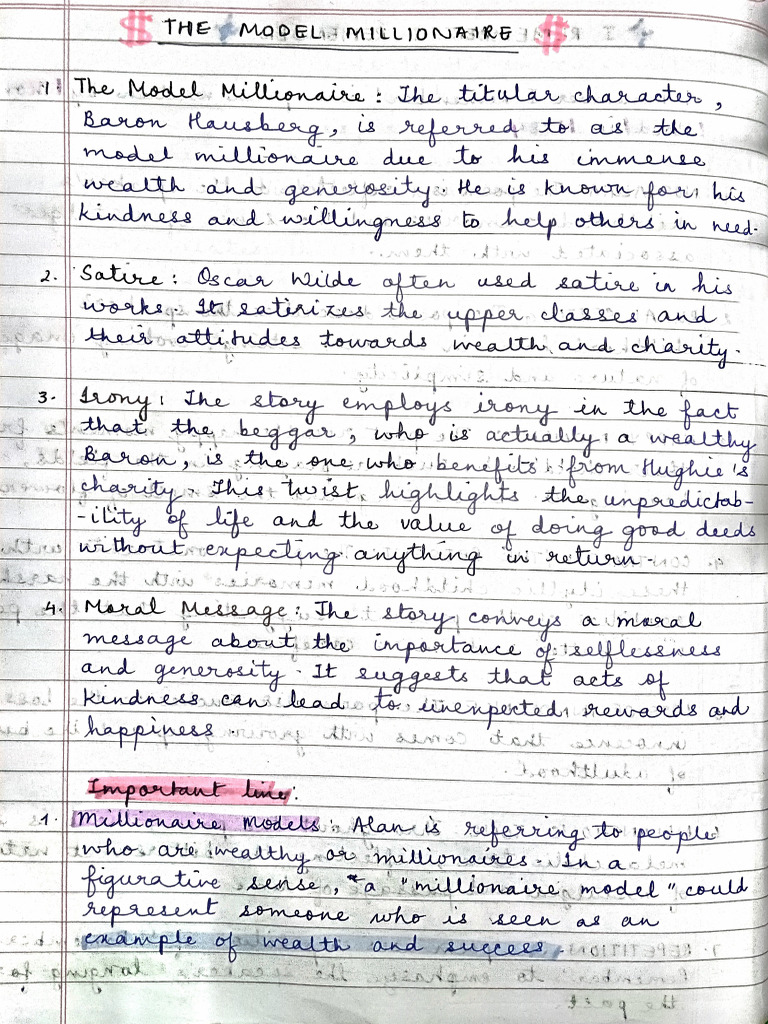 $ THE MODEL MILLIONAIRE $
1. The Model Millionaire : The titular character,
Baron Hausberg, is referred to as the
model millionaire due to his immense
wealth and generosity. He is known for his
kindness and willingness to help others in need.
2. Satire : Oscar Wilde often used satire in his
works. It satirizes the upper classes and
their attitudes towards wealth and charity.
3. Irony : The story employs irony in the fact
that the beggar, who is actually a wealthy
Baron, is the one who benefits from Hughie's
charity. This twist highlights the unpredictab-
-ility of life and the value of doing good deeds
without expecting anything in return.
4. Moral Message : The story conveys a moral
message about the importance of selflessness
and generosity. It suggests that acts of
kindness can lead to unexpected rewards and
happiness.
Important line :
1. Millionaire Models : Alan is referring to people
who are wealthy or millionaires. In a
figurative sense, "a "millionaire model" could
represent someone who is seen as an
example of wealth and success.